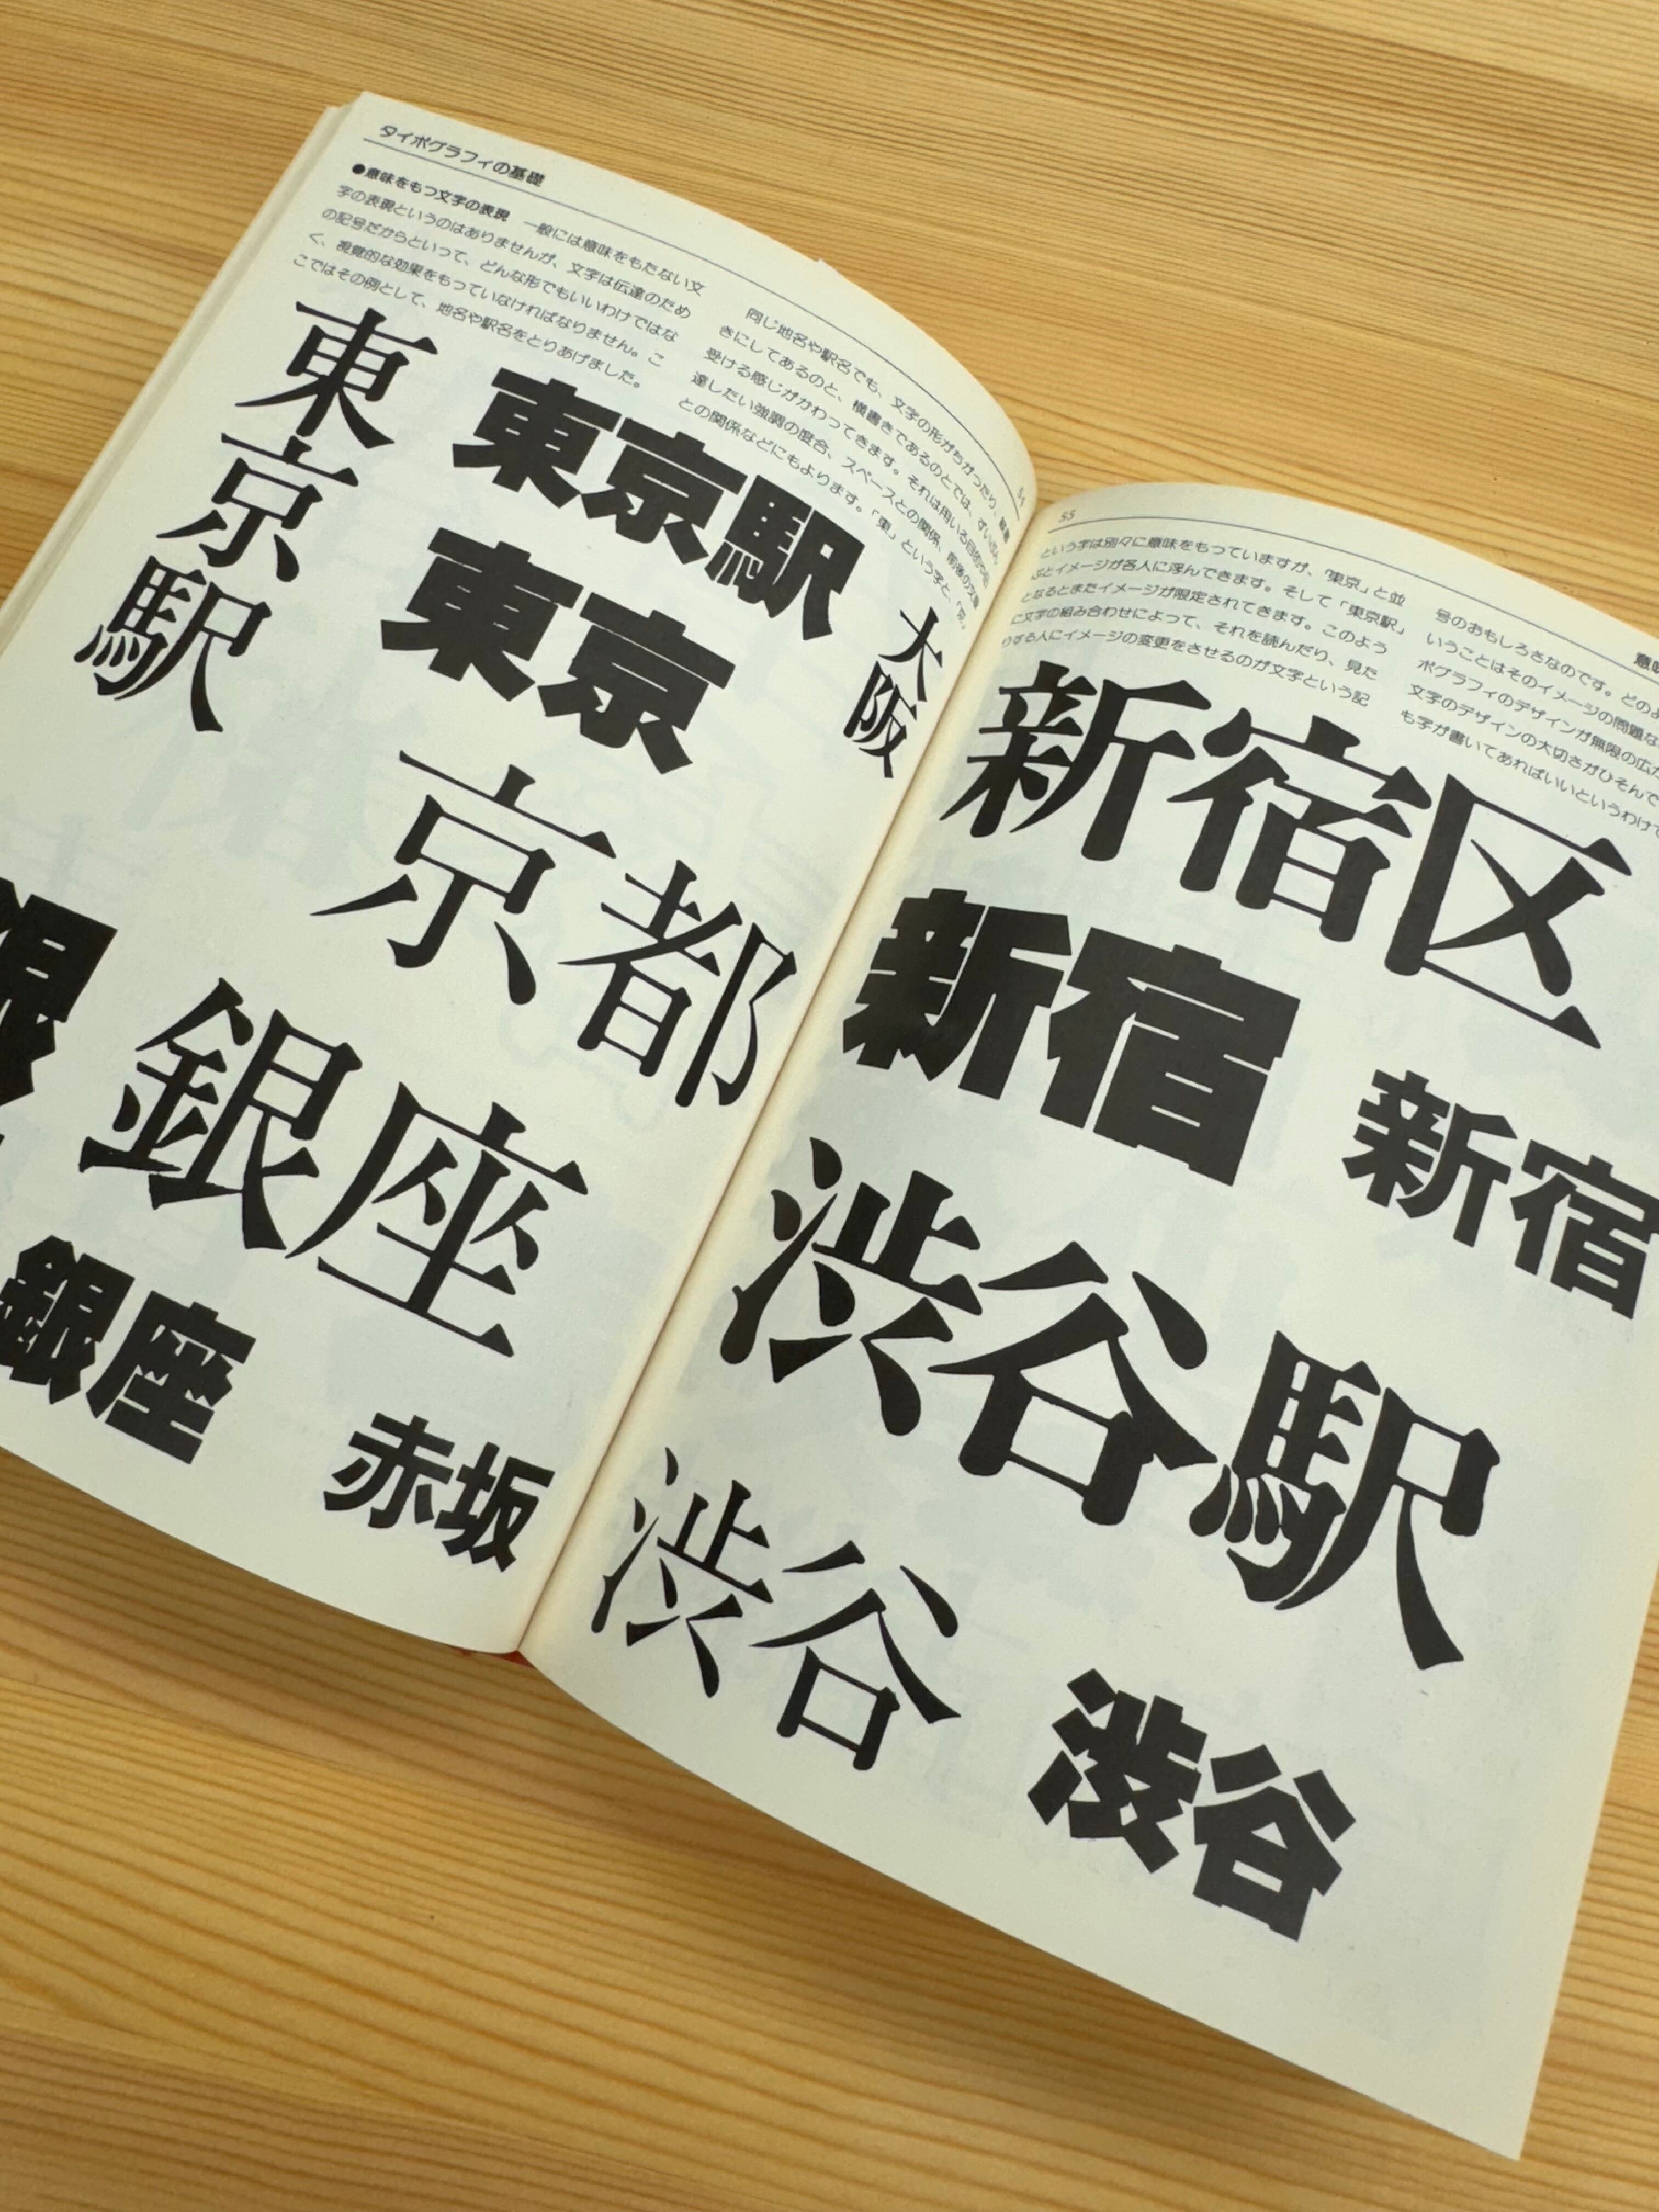 タイポグラフィの基礎
●意味をもつ文字の表現 一般には意味をもたない文
字の表現というのはありませんが、文字は伝達のため
の記号だからといって、どんな形でもいいわけではな
く、視覚的な効果をもっていなければなりません。こ
こではその例として、地名や駅名をとりあげました。
同じ地名や駅名でも、文字の形がちがったり、縦書
きにしてあるのと、横書きであるのとでは、ずいぶん
受ける感じがかわってきます。それは用いる目的や伝
達したい強調の度合、スペースとの関係、前後の文章
との関係などにもよります。「東」という字と、「京」
54
東京駅
東京駅
東京
大阪
京都
銀
銀座
銀座
赤坂
55
意味
という字は別々に意味をもっていますが、「東京」と並
ぶとイメージが各人に浮んできます。そして「東京駅」
となるとまたイメージが限定されてきます。このよう
に文字の組み合わせによって、それを読んだり、見た
りする人にイメージの変更をさせるのが文字という記
号のおもしろさなのです。どのよ
いうことはそのイメージの問題な
ポグラフィのデザインが無限の広が
文字のデザインの大切さがひそんで
も字が書いてあればいいというわけで
新宿区
新宿
新宿
渋谷駅
渋谷
渋谷